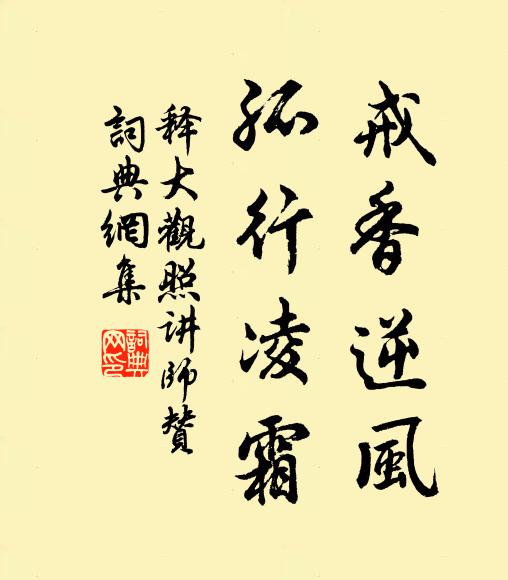 戒香逆風
孤行凌霜
释大觀照讲师贊
詞典網集
詞典
网印